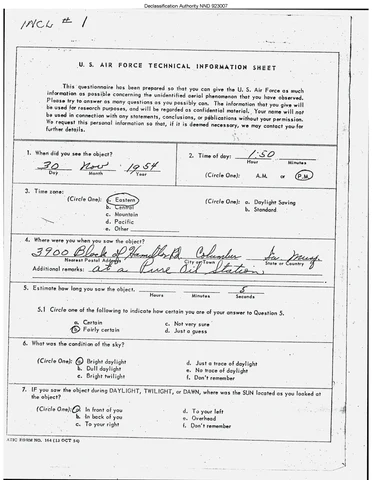 Declassification Authority NND 923007
INCL # 1
U. S. AIR FORCE TECHNICAL INFORMATION SHEET
This questionnaire has been prepared so that you can give the U. S. Air Force as much
information as possible concerning the unidentified aerial phenomenon that you have observed.
Please try to answer as many questions as you possibly can. The information that you give will
be used for research purposes, and will be regarded as confidential material. Your name will not
be used in connection with any statements, conclusions, or publications without your permission.
We request this personal information so that, if it is deemed necessary, we may contact you for
further details.
1. When did you see the object?
30 Nov 1954
Day Month Year
2. Time of day: 1:50
Hour Minutes
(Circle One): A.M. or P.M.
3. Time zone:
(Circle One): a. Eastern
b. Central
c. Mountain
d. Pacific
e. Other
(Circle One): a. Daylight Saving
b. Standard
4. Where were you when you saw the object?
3900 Block of Hamilton Rd Columbus Ga
Nearest Postal Address City or Town State or Country
Additional remarks: at a Pure Oil Station
5. Estimate how long you saw the object. 5
Hours Minutes Seconds
5.1 Circle one of the following to indicate how certain you are of your answer to Question 5.
a. Certain
b. Fairly certain
c. Not very sure
d. Just a guess
6. What was the condition of the sky?
(Circle One): a. Bright daylight
b. Dull daylight
c. Bright twilight
d. Just a trace of daylight
e. No trace of daylight
f. Don't remember
7. IF you saw the object during DAYLIGHT, TWILIGHT, or DAWN, where was the SUN located as you looked at
the object?
(Circle One): a. In front of you
b. In back of you
c. To your right
d. To your left
e. Overhead
f. Don't remember
ATIC FORM NO. 164 (13 OCT 54)